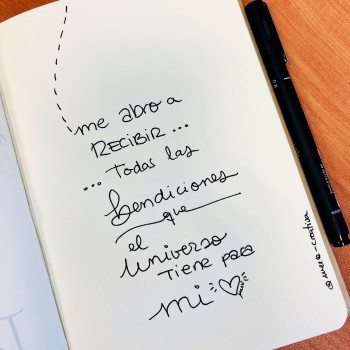 me abro a
RECIBIR...
... Todas las
bendiciones
que
el
universo
Tiene para
mi